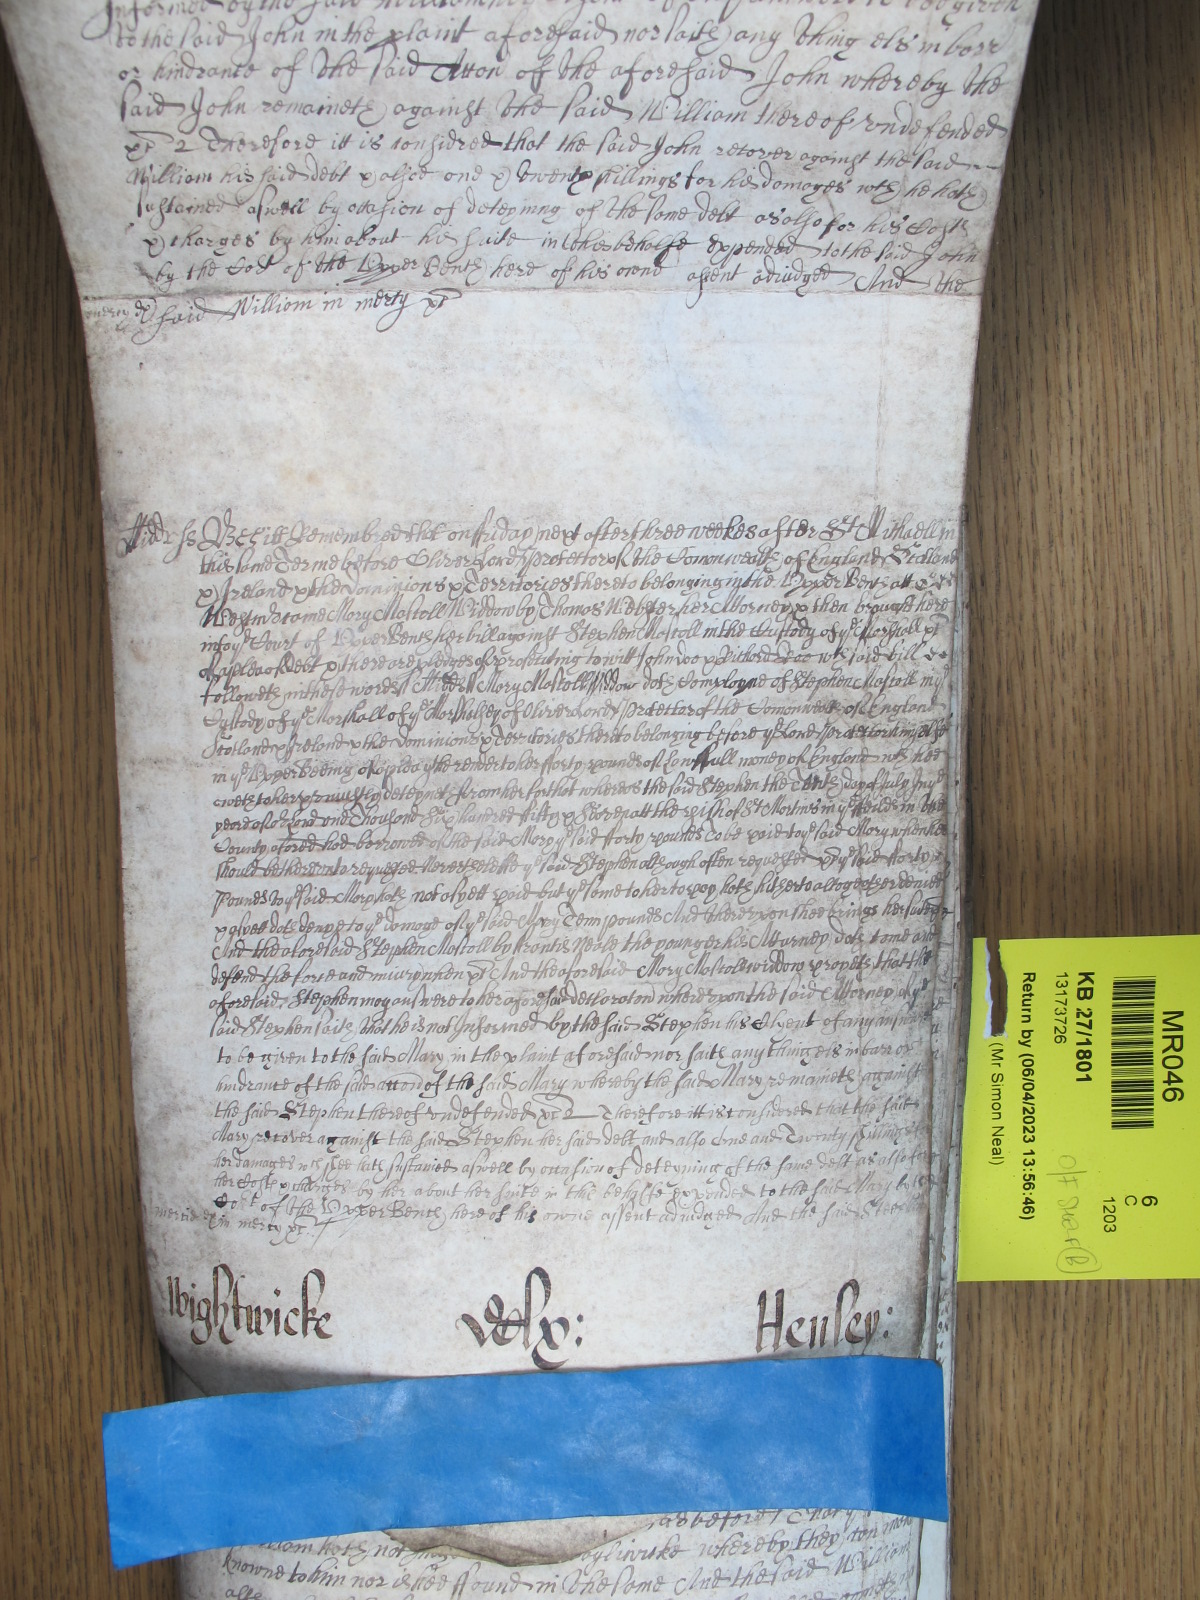 Informed by the said William his Clyent of any answere to bee given
to the said John in the plaint aforesaid nor saith any thing els in barr
or hindrance of the said Accon of the aforesaid John whereby the
said John remaineth against the said William thereof undefended
&c Therefore itt is considred that the said John recover against the said
William his said debt & alsoe one & twenty shillings for his damages wch he hath
sustained aswell by occasion of deteyning of the same debt as also for his Costs
& charges by him about his suite in this behalfe expended to the said John
by the Cort of the Upper Bench here of his owne assent adiudged And the
said William in mercy &c
Midd ss Bee itt remembred that on ffriday next after three weekes after St Michaell in
this same Terme before Oliver Lord Protector of the Comonwealth of England Scotland
& Ireland & the Dominions & Territories thereto belonging in the Upper Bench att
Westmr came Mary Mascoll Widdow by Thomas Webster her Attorney & then brought here
into ye Court of Upper Bench her bill against Stephen Mascoll in the Custody of ye Marshall &c
of a plea of debt & there are pledges of prosecuting to witt John Doe & Richard Roe wch said bill
followeth in these words ss Midds ss Mary Mascoll Widdow doth Complayne of Stephen Mascoll in ye
Custody of ye Marshall of ye Marshalsey of Oliver Lord Protector of the Comonwealth of England
Scotland & Ireland & the Dominions & Territories thereto belonging before ye Lord Protector himselfe
in ye Upper Bench of a plea yt he render to her fforty pounds of Lawfull money of England wch hee
oweth to her & uniustly deteyneth from her ffor that whereas the said Stephen the Tenth day of July In ye
yeare of or Lord one Thousand Six hundred fifty & att the pish of St Martins in ye ffeilds in the
County aforesd had borrowed of the said Mary ye said fforty pounds to be paid to ye said Mary when hee
should be thereunto requested Neverthelesse ye said Stephen although often requested &c ye said fforty
pounds to ye said Mary hath not as yett paid but ye same to her to pay hath hitherto altogether denied
& as yett doth deny to ye damage of ye said Mary Tenn pounds And thereupon shee brings her suite &c
And the aforesaid Stephen Mascoll by Francis Neale the younger his Attorney doth come and
defend the force and iniury when &c And the aforesaid Mary Mascoll widdow prayeth that the
aforesaid Stephen may answere to her aforesaid declaracon whereupon the said Attorney of ye
said Stephen saith that he is not Informed by the said Stephen his Clyent of any answere
to be given to the said Mary in the plaint aforesaid nor saith any thing els in barr or
hindrance of the said accon of the said Mary whereby the said Mary remaineth against
the said Stephen thereof undefended &c Therefore itt is considered that the said
Mary recover against the said Stephen her said debt and also One and Twenty shillings for
her damages wch shee hath sustained aswell by occasion of deteyning of the same debt as also for
her Costs & charges by her about her suite in this behalfe expended to the said Mary by the
Cort of the Upper Bench here of his owne assent adiudged And the said Stephen
in mercy &c
Wightwicke
Henley:
MR046
6
C
1203
KB 27/1801
13173726
Return by (06/04/2023 13:56:46)
(Mr Simon Neal)
as before Mary
hath not
whereby they
knowne to him nor is hee ffound in the same And the said William